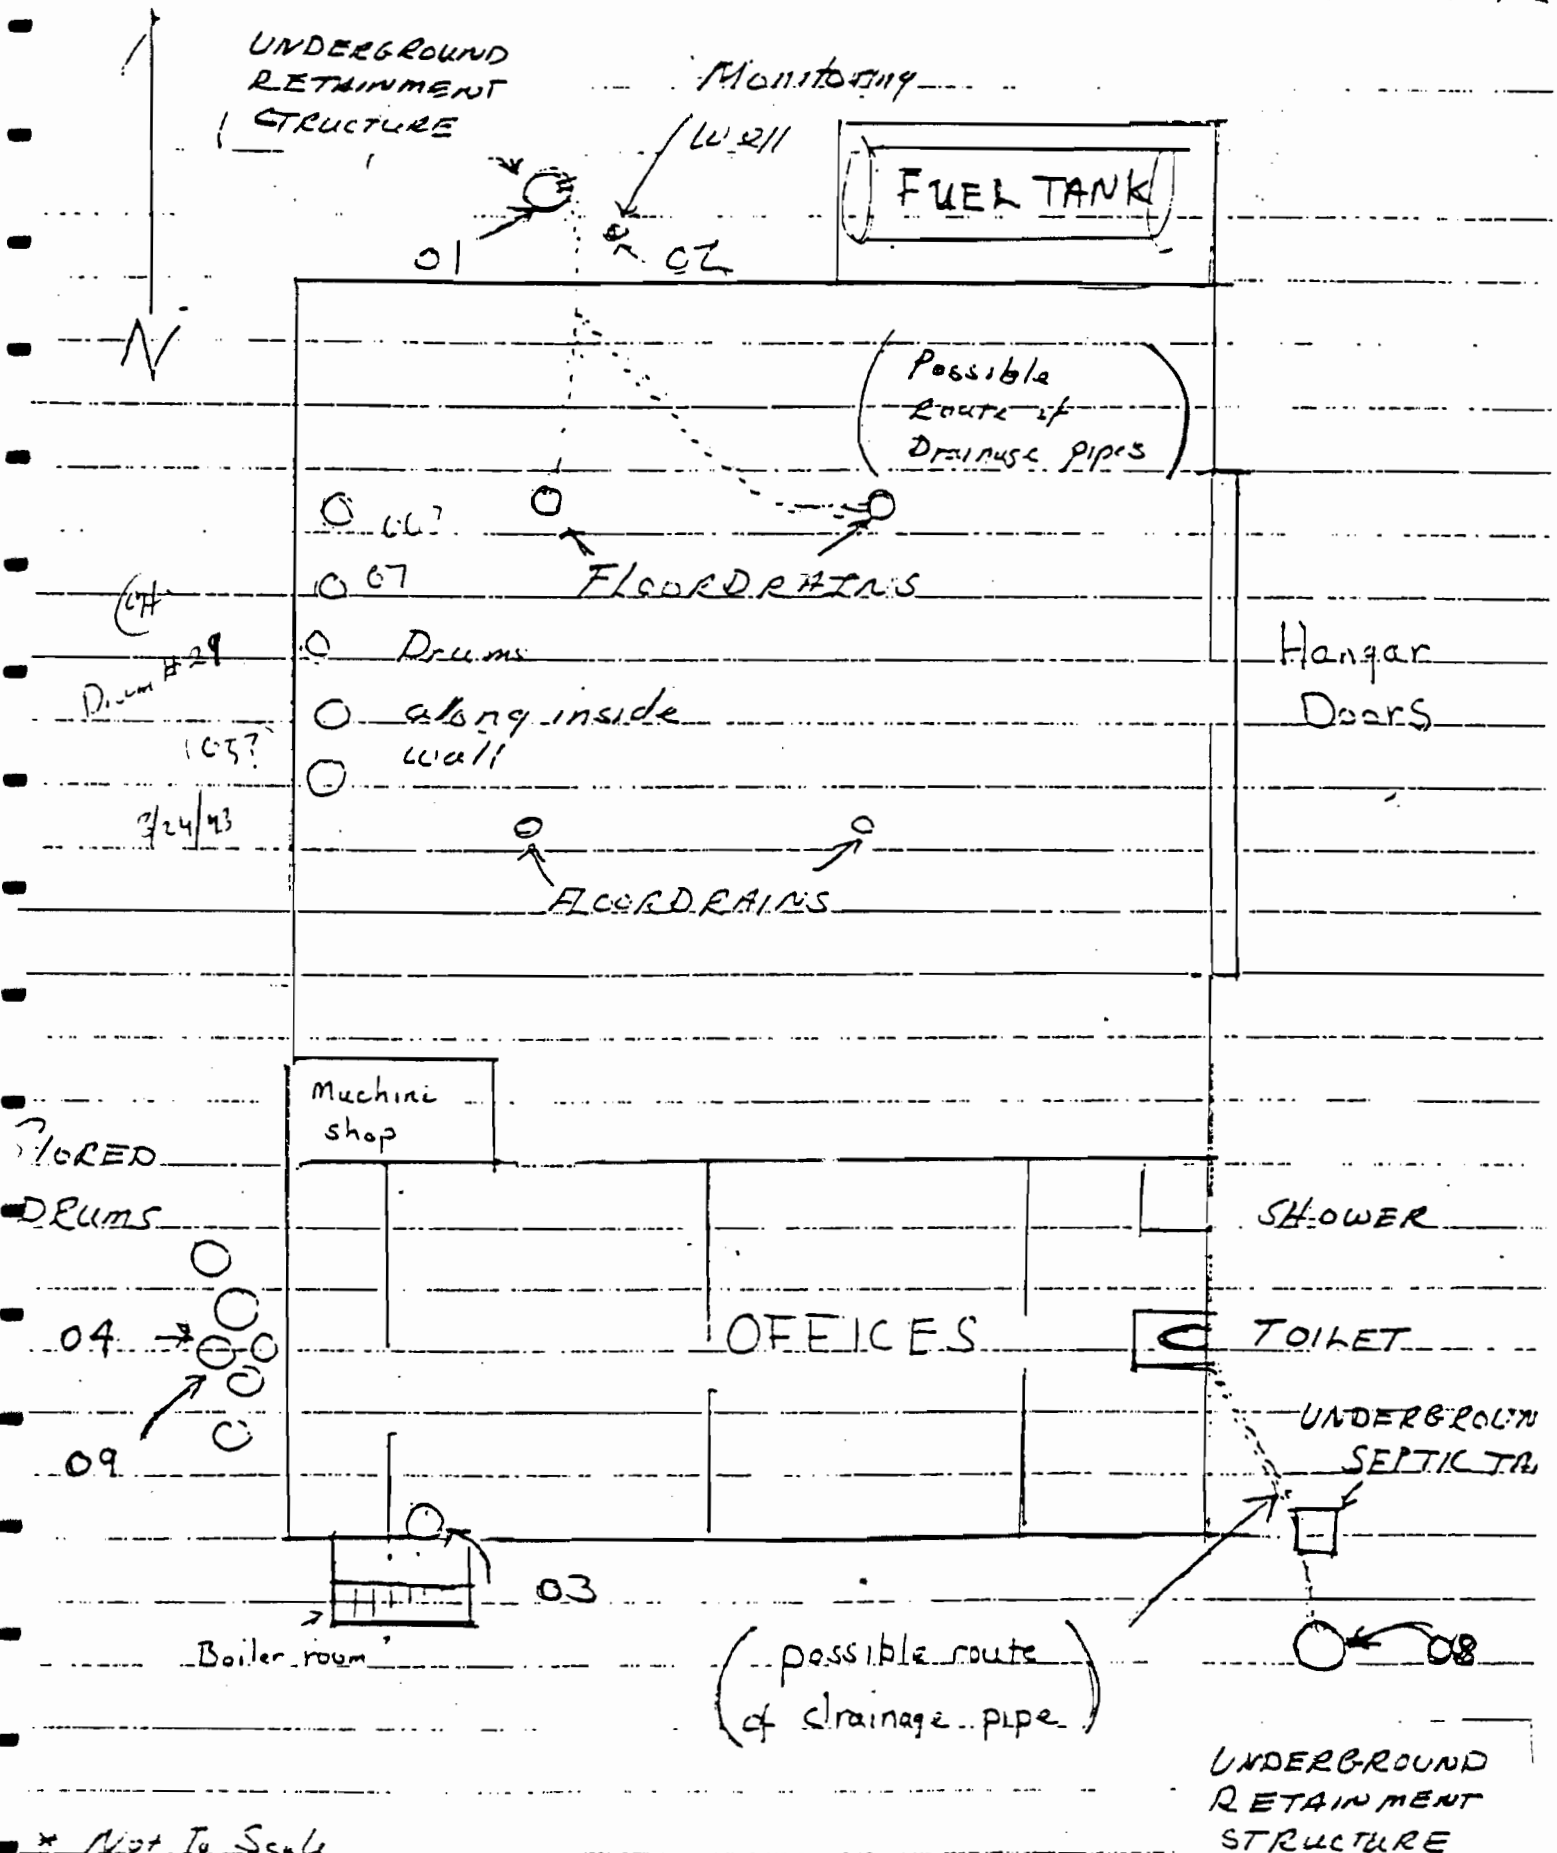 UNDERGROUND
RETAINMENT
STRUCTURE
Monitoring
Well
FUEL TANK
01
02
N
Possible
Route of
Drainage pipes
06?
07
FLOORDRAINS
Drum #29
Drums
along inside
wall
Hangar
Doors
05?
3/24/93
FLOORDRAINS
Machine
shop
STORED
DRUMS
SHOWER
04
OFFICES
TOILET
09
UNDERGROUN
SEPTIC TA
03
Boiler room
possible route
of drainage pipe
08
UNDERGROUND
RETAINMENT
STRUCTURE
* Not To Scale